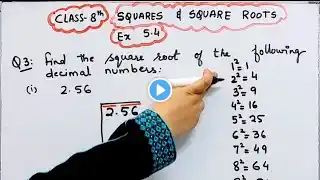 CLASS-8th SQUARES & SQUARE ROOTS
Ex 5.4
Q3: Find the square root of the following
decimal numbers:
(i) 2.56
2.56
1² = 1
2² = 4
3² = 9
4² = 16
5² = 25
6² = 36
7² = 49
8² = 64